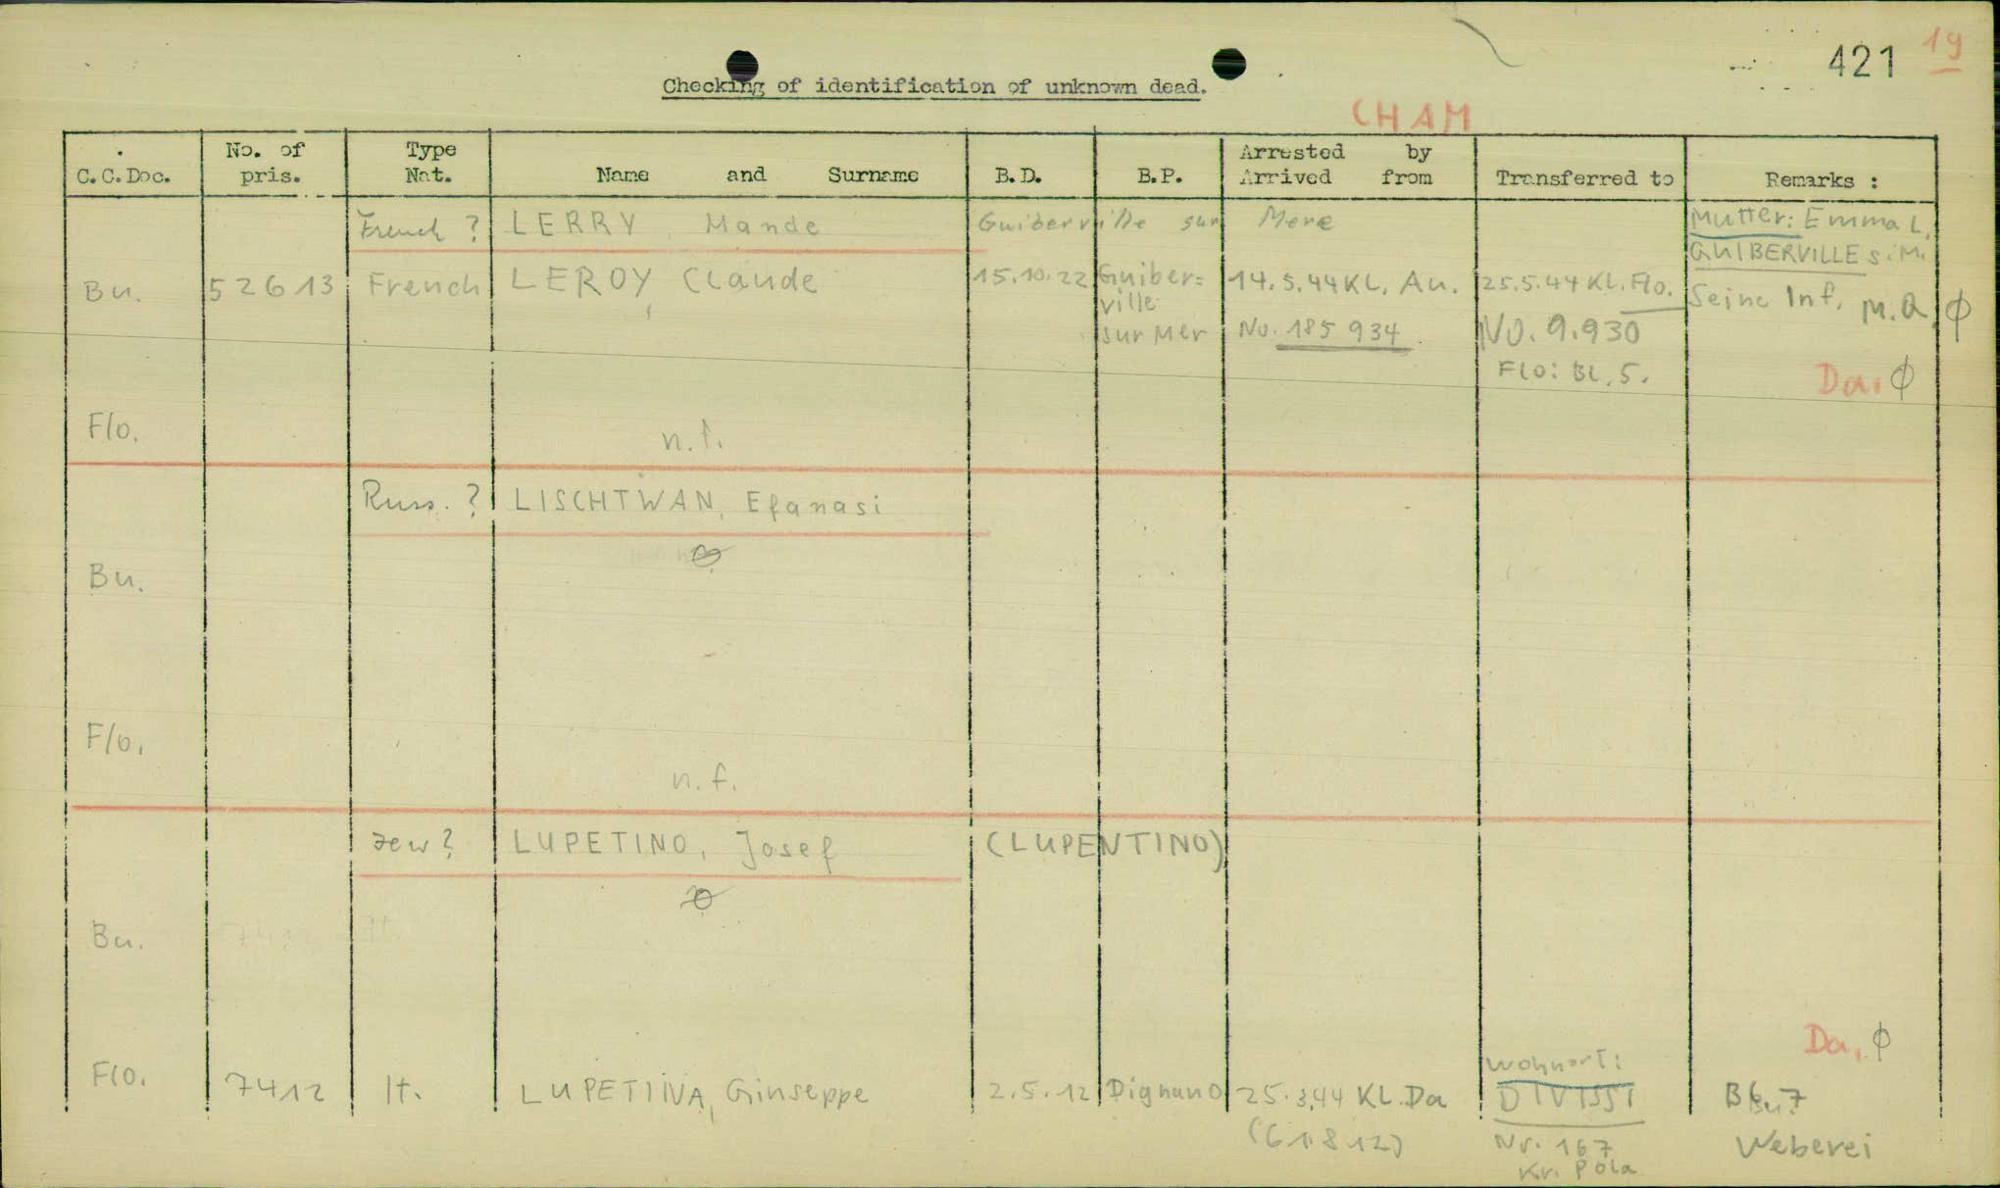 421 19
Checking of identification of unknown dead.
CHAM
C.C.Doc. No. of pris. Type Nat. Name and Surname B.D. B.P. Arrested by Arrived from Transferred to Remarks :
French ? LERRY Mande Guiberville sur Mere Mutter: Emma L.
GUIBERVILLE s. M.
Bu. 52613 French LEROY Claude 15.10.22 Guiber= 14.5.44 KL. Au. 25.5.44 KL. Flo. Seine Inf. M.Q. ϕ
ville
sur Mer No. 185 934 NO. 9.930
Flo: BL. 5. Da. ϕ
Flo. n.f.
Russ. ? LISCHTWAN, Efanasi
Bu.
Flo.
n.f.
Jew ? LUPETINO, Josef (LUPENTINO)
Bu.
Da, ϕ
Wohnort:
Flo. 7412 It. LUPETINA, Ginseppe 2.5.12 Dignano 25.3.44 KL.Da
Nr. 167 Weberei
Kr. Pola